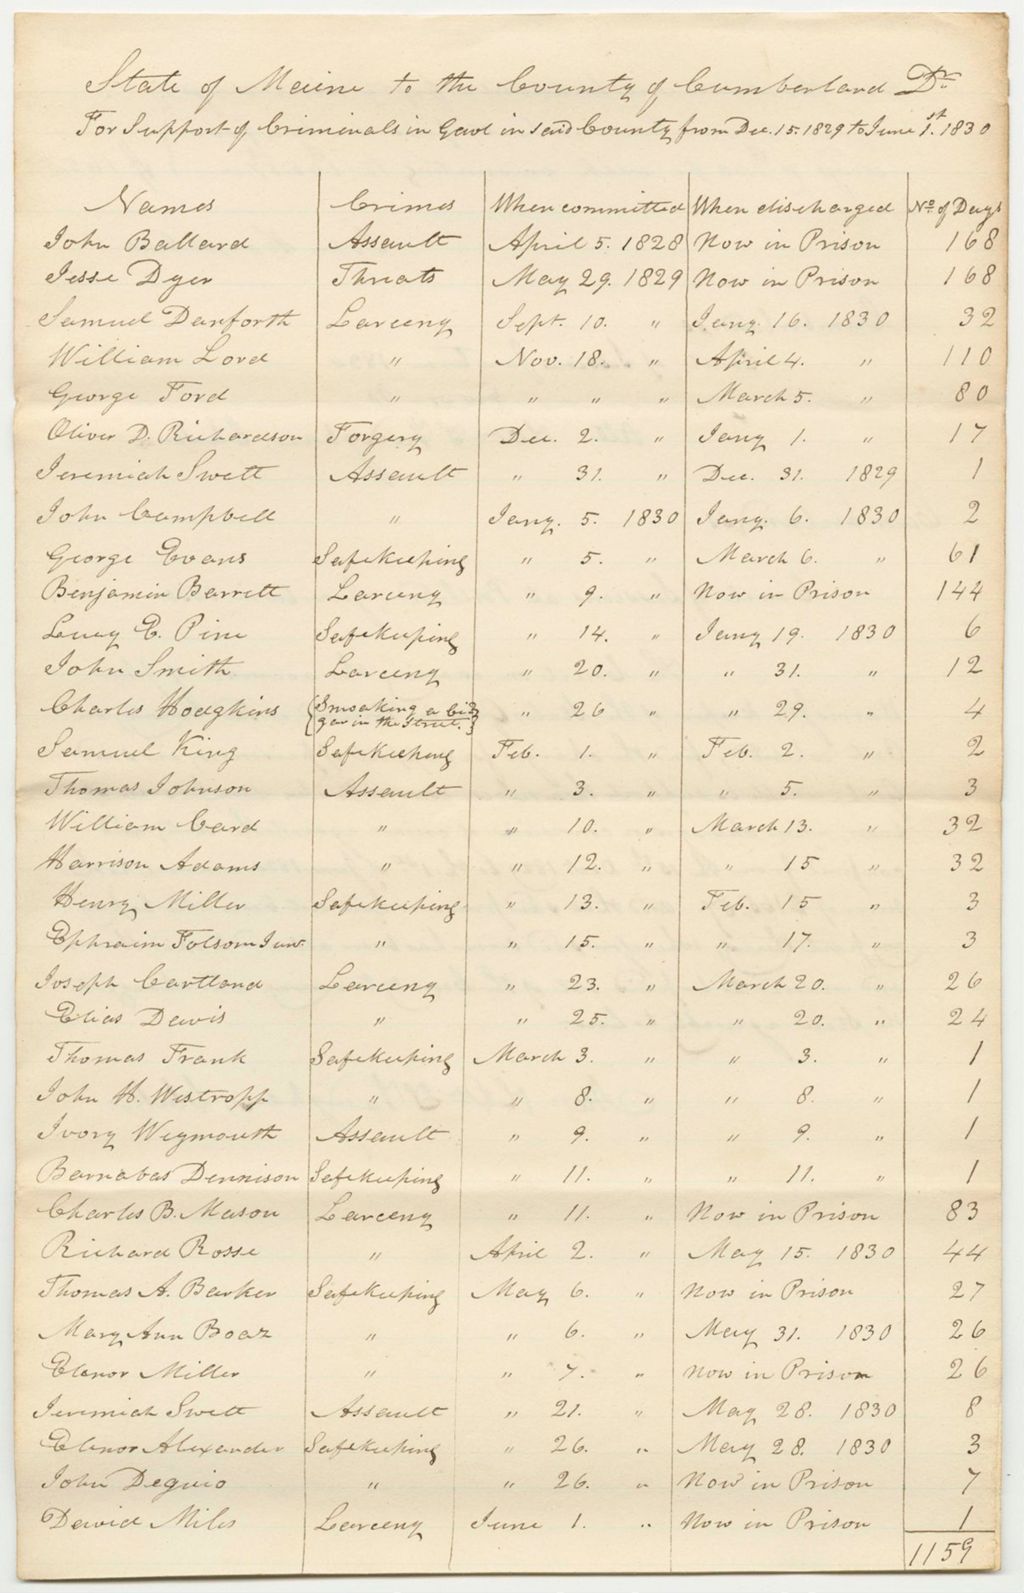 State of Maine to the County of Cumberland Dr.
For Support of Criminals in Gaol in said County from Dec. 15. 1829 to June 1st. 1830
Names Crimes When committed When discharged No. of Days
John Ballard Assault April 5. 1828 Now in Prison 168
Jesse Dyer Threats May 29. 1829 Now in Prison 168
Samuel Danforth Larceny Sept. 10. " Jany. 16. 1830 32
William Lord " Nov. 18. " April 4. " 110
George Ford " " " " March 5. " 80
Oliver D. Richardson Forgery Dec. 2. " Jany 1. " 17
Jeremiah Swett Assault " 31. " Dec. 31. 1829 1
John Campbell " Jany. 5. 1830 Jany. 6. 1830 2
George Evans Safekeeping " 5. " March 6. " 61
Benjamin Barrett Larceny " 9. " Now in Prison 144
Lucy E. Pine Safekeeping " 14. " Jany 19. 1830 6
John Smith Larceny " 20. " " 31. " 12
Charles Hodgkins {Smoaking a Ci-
gar in the Street.} " 26 " " 29. " 4
Samuel King Safekeeping Feb. 1. " Feb. 2. " 2
Thomas Johnson Assault " 3. " " 5. " 3
William Card " " 10. " March 13. " 32
Harrison Adams " " 12. " " 15 " 32
Henry Miller Safekeeping " 13. " Feb. 15 " 3
Ephraim Folsom Junr. " " 15. " " 17. " 3
Joseph Cartland Larceny " 23. " March 20. " 26
Elias Davis " " 25. " " 20. " 24
Thomas Frank Safekeeping March 3. " " 3. " 1
John H. Westropp " " 8. " " 8. " 1
Ivory Weymouth Assault " 9. " " 9. " 1
Barnabas Dennison Safekeeping " 11. " " 11. " 1
Charles B. Mason Larceny " 11. " Now in Prison 83
Richard Rosse " April 2. " May 15. 1830 44
Thomas A. Barker Safekeeping May 6. " Now in Prison 27
Mary Ann Boaz " " 6. " May 31. 1830 26
Elenor Miller " " 7. " Now in Prison 26
Jeremiah Swett Assault " 21. " May 28. 1830 8
Elenor Alexander Safekeeping " 26. " May 28. 1830 3
John Deguio " " 26. " Now in Prison 7
David Miles Larceny June 1. " Now in Prison 1
1159